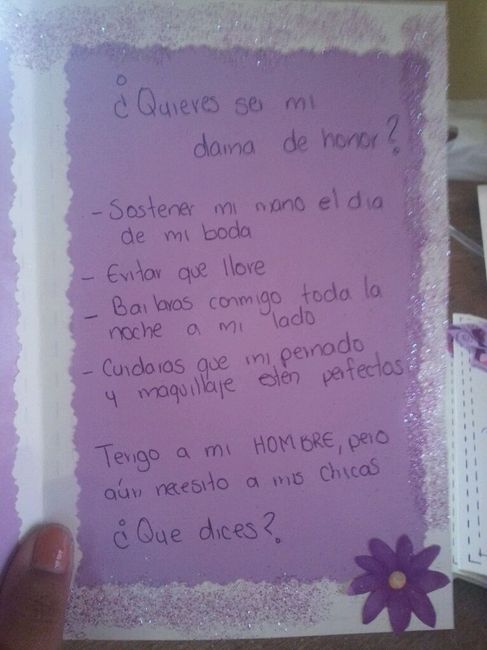 ¿Quieres ser mi
dama de honor?
- Sostener mi mano el dia
de mi boda
- Evitar que llore
- Bailaras conmigo toda la
noche a mi lado
- Cuidaras que mi peinado
y maquillaje estén perfectos
Tengo a mi HOMBRE, pero
aún necesito a mis chicas
¿Que dices?